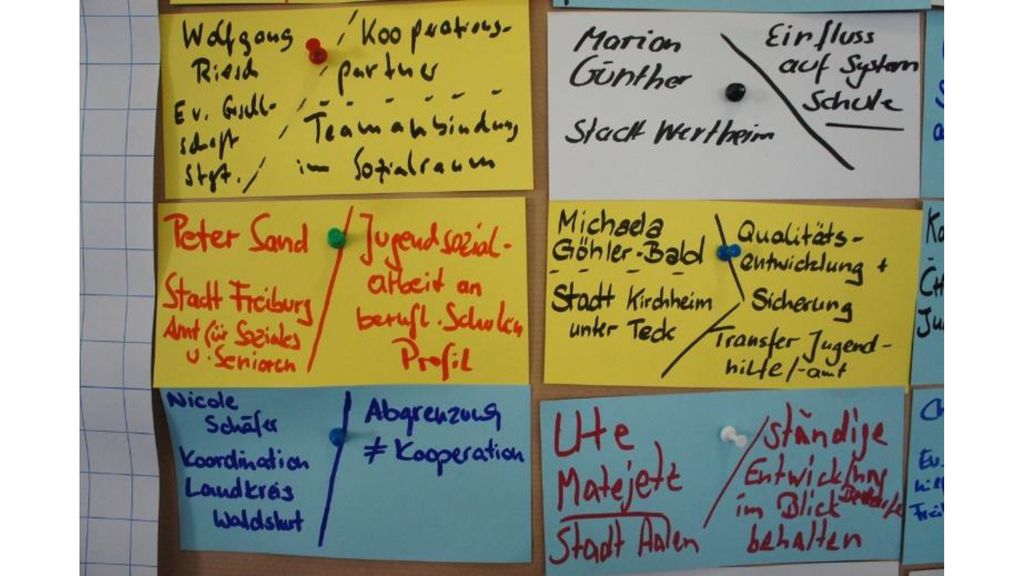 Wolfgang
Riesch
Ev. Gesell-
schaft
Stgt.
Kooperations-
partner
Teamanbindung
im Sozialraum
Marion
Günther
Stadt Wertheim
Einfluss
auf System
Schule
Peter Sand
Stadt Freiburg
Amt für Soziales
u. Senioren
Jugendsozial-
arbeit an
berufl. Schulen
Profil
Michaela
Göhler-Bald
Stadt Kirchheim
unter Teck
Qualitäts-
entwicklung +
Sicherung
Transfer Jugend-
hilfe/-amt
Nicole
Schäfer
Koordination
Landkreis
Waldshut
Abgrenzung
≠ Kooperation
Ute
Matejetz
Stadt Aalen
ständige
Entwicklung
im Blick Bedarfe
behalten
Ev.